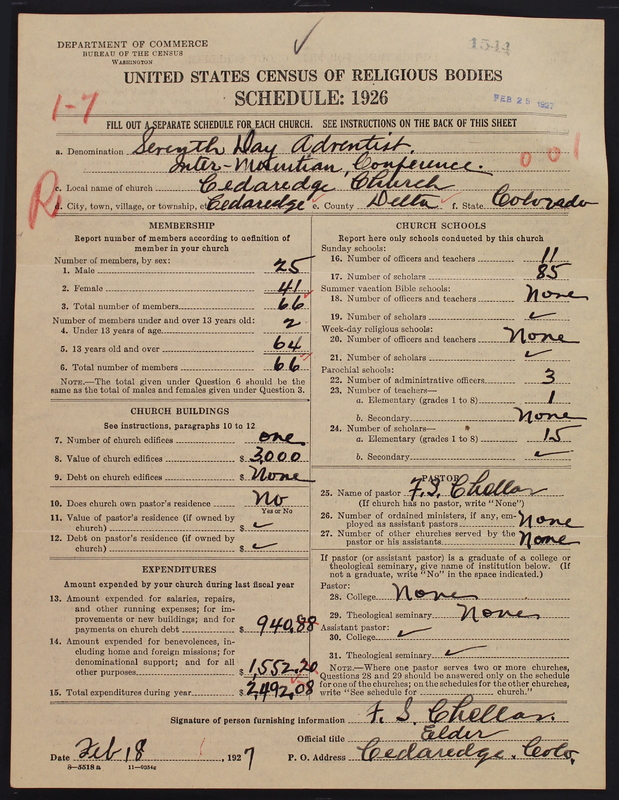 DEPARTMENT OF COMMERCE
BUREAU OF THE CENSUS
WASHINGTON
1544
UNITED STATES CENSUS OF RELIGIOUS BODIES
SCHEDULE: 1926
FEB 25 1927
1-7
FILL OUT A SEPARATE SCHEDULE FOR EACH CHURCH. SEE INSTRUCTIONS ON THE BACK OF THIS SHEET
a. Denomination Seventh Day Adventist.
Inter-Mountian, Conference.
001
c. Local name of church Cedaredge Church
R
d. City, town, village, or township, etc. Cedaredge e. County Delta f. State Colorado
MEMBERSHIP
Report number of members according to definition of
member in your church
Number of members, by sex:
1. Male 25
2. Female 41
3. Total number of members 66
Number of members under and over 13 years old:
4. Under 13 years of age 2
5. 13 years old and over 64
6. Total number of members 66
NOTE.—The total given under Question 6 should be the
same as the total of males and females given under Question 3.
CHURCH BUILDINGS
See instructions, paragraphs 10 to 12
7. Number of church edifices one
8. Value of church edifices $ 3,000
9. Debt on church edifices $ None
10. Does church own pastor's residence No
Yes or No
11. Value of pastor's residence (if owned by
church) $ ✓
12. Debt on pastor's residence (if owned by
church) $ ✓
EXPENDITURES
Amount expended by your church during last fiscal year
13. Amount expended for salaries, repairs,
and other running expenses; for im-
provements or new buildings; and for
payments on church debt $ 940.88
14. Amount expended for benevolences, in-
cluding home and foreign missions; for
denominational support; and for all
other purposes $ 1,552.20
15. Total expenditures during year $ 2,492.08
CHURCH SCHOOLS
Report here only schools conducted by this church
Sunday schools:
16. Number of officers and teachers 11
17. Number of scholars 85
Summer vacation Bible schools:
18. Number of officers and teachers None
19. Number of scholars ✓
Week-day religious schools:
20. Number of officers and teachers None
21. Number of scholars ✓
Parochial schools:
22. Number of administrative officers 3
23. Number of teachers—
a. Elementary (grades 1 to 8) 1
b. Secondary None
24. Number of scholars—
a. Elementary (grades 1 to 8) 15
b. Secondary ✓
PASTOR
25. Name of pastor F. S. Chollar
(If church has no pastor, write "None")
26. Number of ordained ministers, if any, em-
ployed as assistant pastors None
27. Number of other churches served by the
pastor or his assistants None
If pastor (or assistant pastor) is a graduate of a college or
theological seminary, give name of institution below. (If
not a graduate, write "No" in the space indicated.)
Pastor:
28. College None
29. Theological seminary None
Assistant pastor:
30. College ✓
31. Theological seminary ✓
NOTE.—Where one pastor serves two or more churches,
Questions 28 and 29 should be answered only on the schedule
for one of the churches; on the schedules for the other churches,
write "See schedule for church."
Signature of person furnishing information F. S. Chollar.
Official title Elder
Date Feb 18, 1927 P. O. Address Cedaredge. Colo.
8—5518a 11—9354g